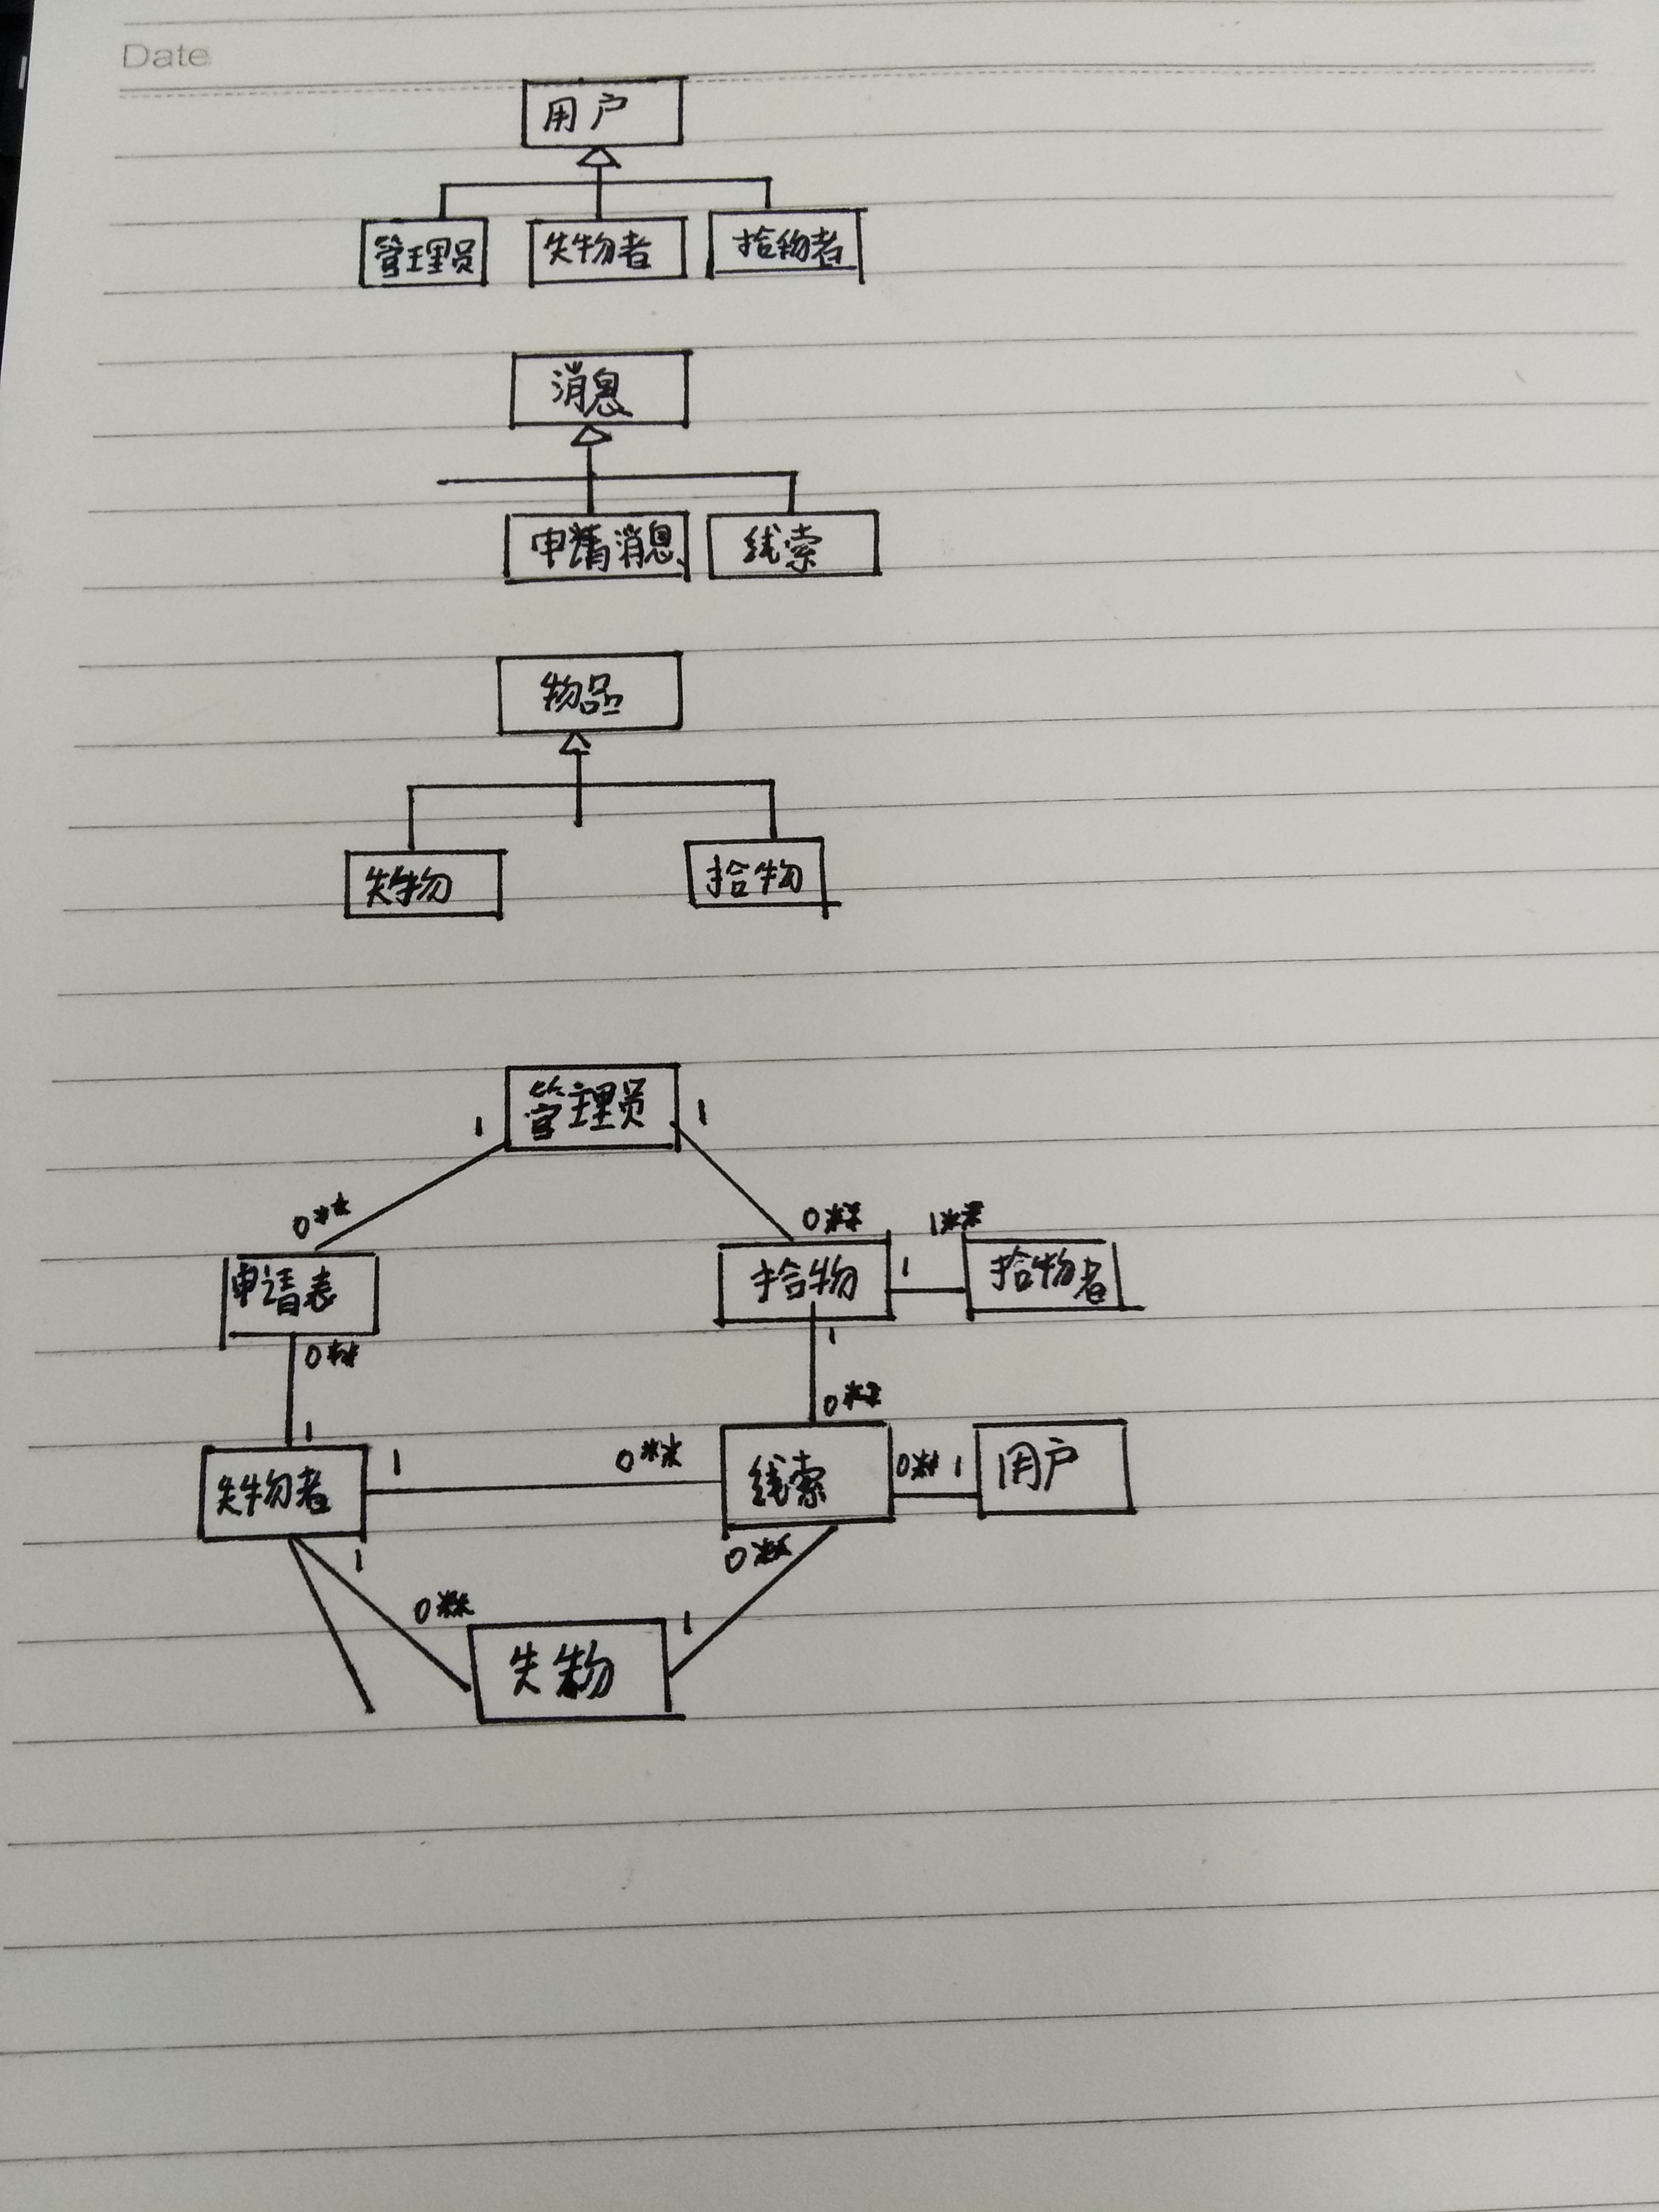 Date
用户
管理员 失物者 拾物者
消息
申请消息 线索
物品
失物 拾物
管理员
1 1
0** 0** 1**
申请表 拾物 1 拾物者
0** 1
1 0**
失物者 1 0** 线索 0** 1 用户
1 0**
0** 1
失物